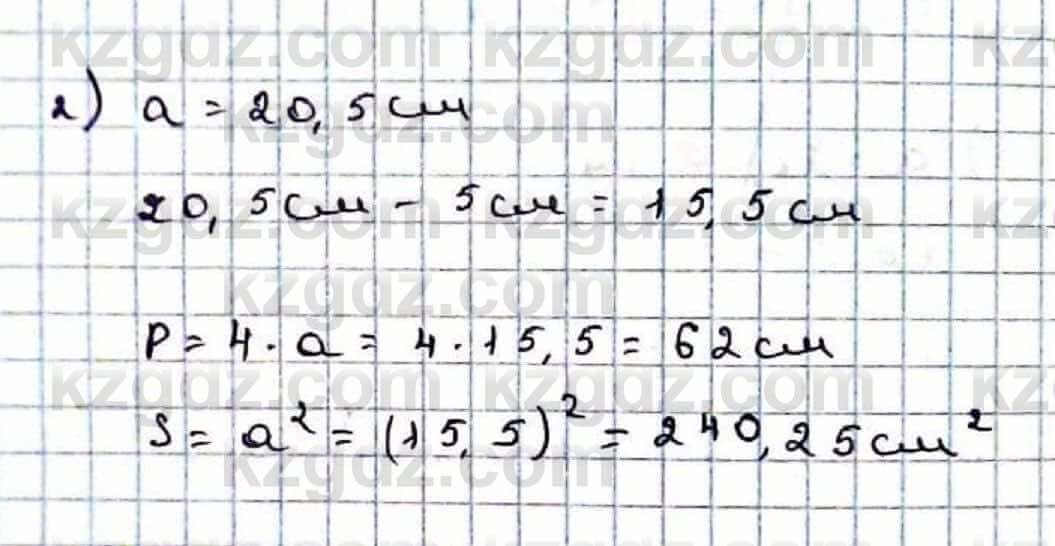 kzgdz.com kzgdz.com kz
2) a = 20,5 см
kzgdz.com
20,5 см - 5 см = 15,5 см
kzgdz.com kzgdz.com kz
kzgdz.com
P = 4 · a = 4 · 15,5 = 62 см
kzgdz.com kzgdz.com kz
S = a² = (15,5)² = 240,25 см²
kzgdz.com